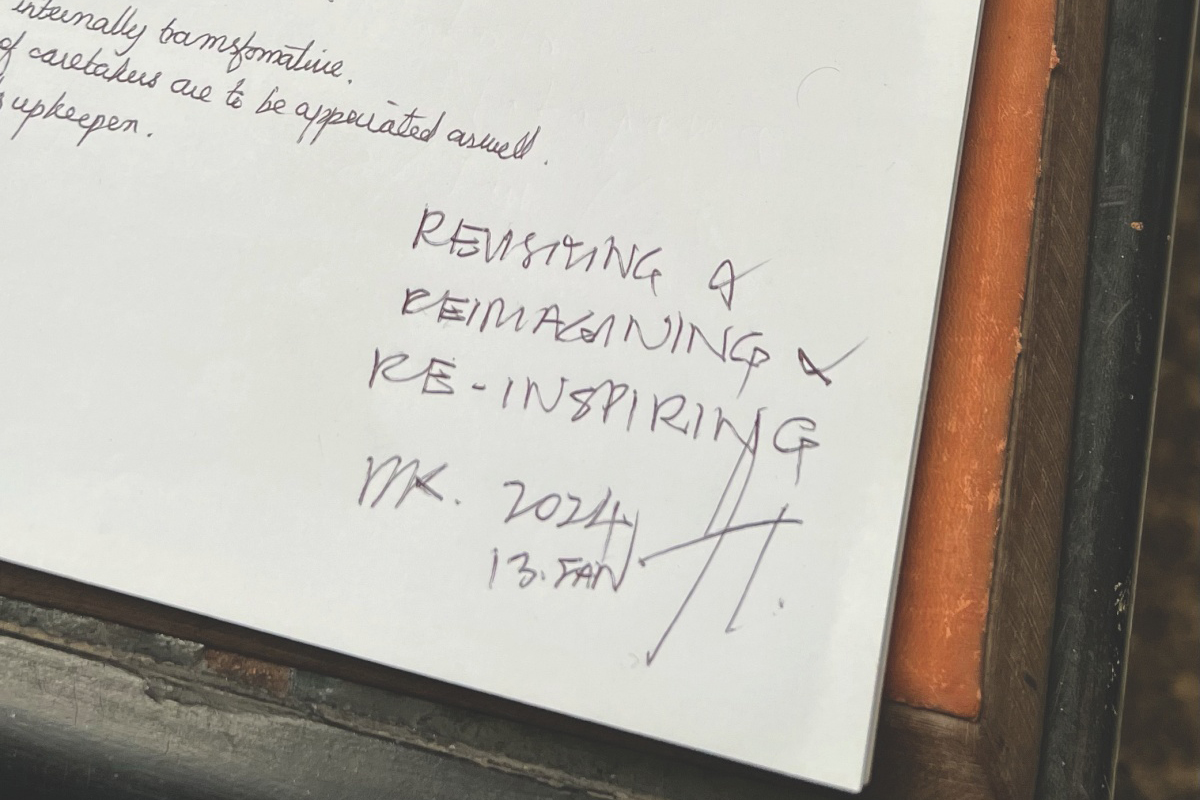 internally transfomative.
of caretakers are to be appreciated aswell.
upkeepen.
REVISITING &
REIMAGINING &
RE-INSPIRING
MK. 2024
13. JAN